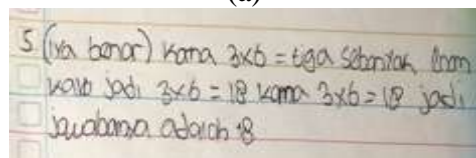 5 (iya benar) karna 3x6 = tiga sebanyak enam
kali jadi 3x6 = 18 karna 3x6 = 18 jadi
jawabanya adalah 18